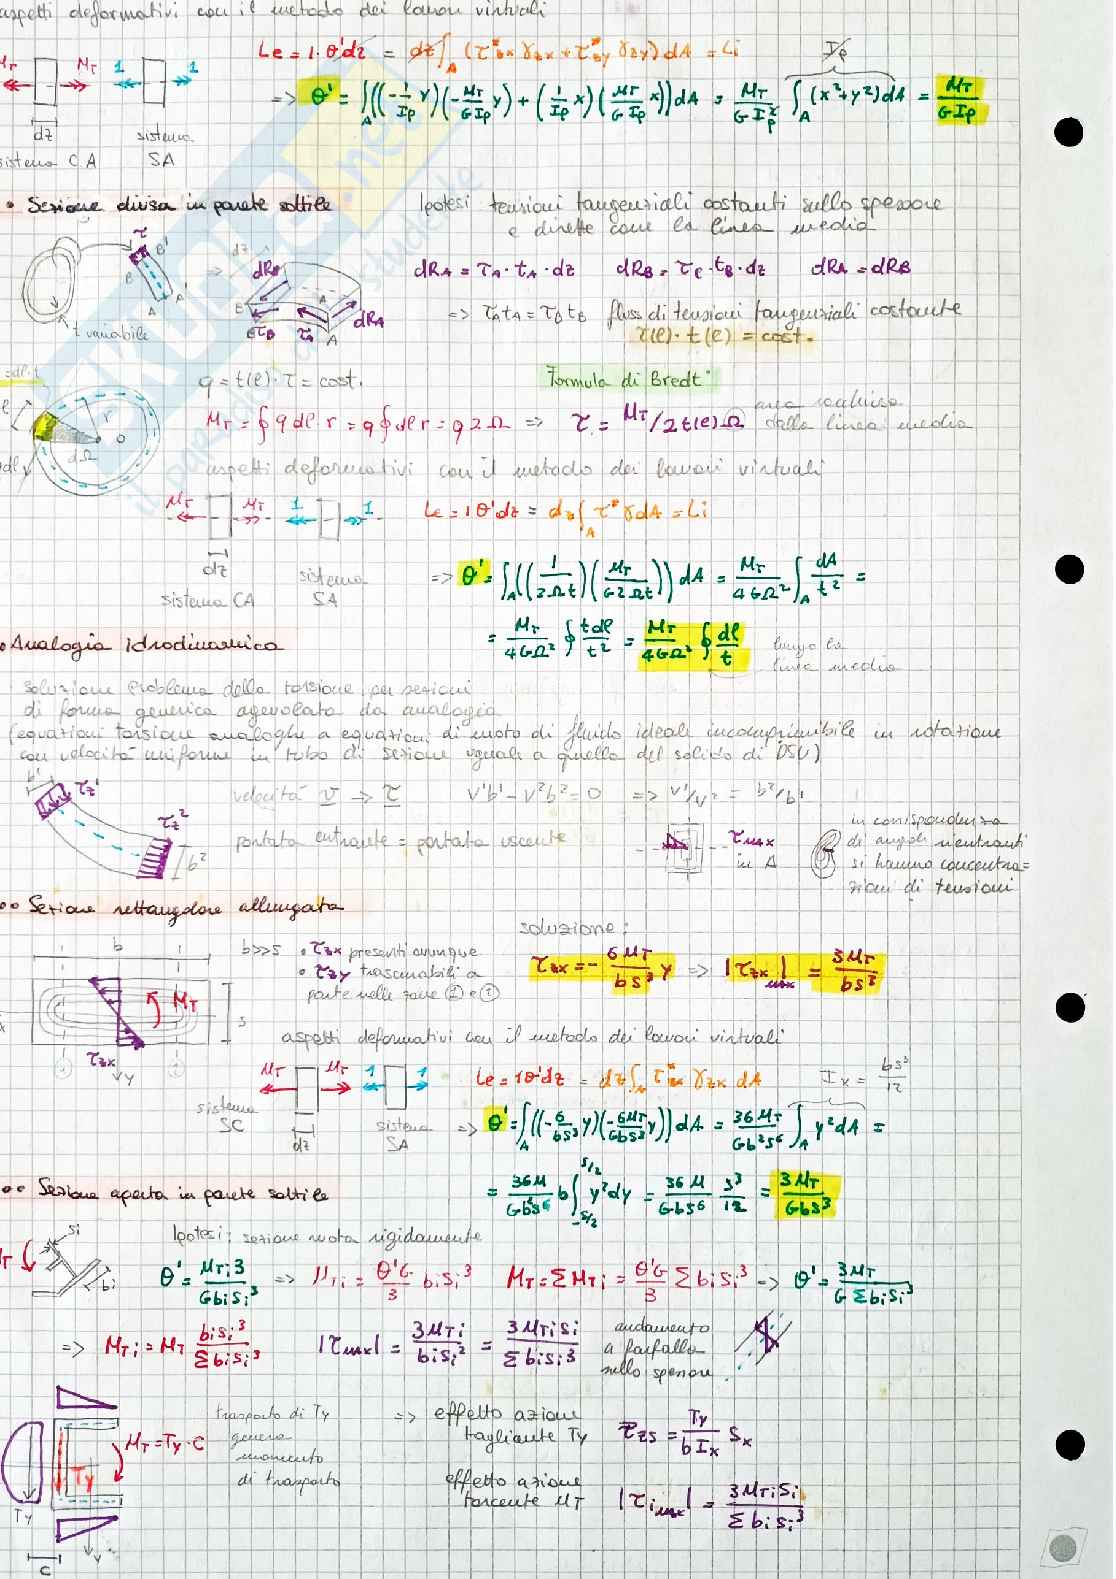 aspetti deformativi con il metodo dei lavori virtuali
Le = 1·θ'dz = dz∫A (τ*zx γzx + τ*zy γzy) dA = Li
MT MT 1 1
=> θ' = ∫A ((-1/Ip y)(-MT/GIp y) + (1/Ip x)(MT/GIp x)) dA = MT/GIp² ∫A (x²+y²) dA = MT/GIp
Ip
dz sistema
sistema CA SA
• Sezione divisa in parete sottile
Ipotesi tensioni tangenziali costanti sullo spessore
e dirette come la linea media
τ B B' A A'
t variabile
dz dRB dRA τB τA A
dRA = τA·tA·dz dRB = τB·tB·dz dRA = dRB
=> τA tA = τB tB flusso di tensioni tangenziali costante
τ(l)·t(l) = cost.
q = t(l)·τ = cost.
Formula di Bredt
=dl·t r O dΩ dl
MT = ∮ q dl r = q ∮ dl r = q 2Ω => τ = MT/2t(l)Ω area racchiusa
dalla linea media
aspetti deformativi con il metodo dei lavori virtuali
MT MT 1 1
Le = 1θ'dz = dz∫A τ*γdA = Li
dz sistema
sistema CA SA
=> θ' = ∫A ((1/2Ωt)(MT/G2Ωt)) dA = MT/4GΩ² ∫A dA/t² =
= MT/4GΩ² ∮ tdl/t² = MT/4GΩ² ∮ dl/t lungo la
linea media
• Analogia idrodinamica
soluzione problema della torsione per sezioni
di forma generica agevolata da analogia
(equazioni torsione analoghe a equazioni di moto di fluido ideale incomprimibile in rotazione
con velocità uniforme in tubo di sezione uguale a quella del solido di DSV)
b' τz¹ τz² b²
velocità v => τ v¹b¹ - v²b² = 0 => v¹/v² = b²/b¹
portata entrante = portata uscente
τmax
in A
in corrispondenza
di angoli rientranti
si hanno concentra=
zioni di tensioni
•• Sezione rettangolare allungata
b s MT τzx y
b>>s • τzx presenti ovunque
• τzy trascurabili a
parte nelle zone ② e ①
soluzione:
τzx = - 6MT/bs³ y => |τzx|max = 3MT/bs²
aspetti deformativi con il metodo dei lavori virtuali
MT MT 1 1
Le = 1θ'dz = dz∫A τ*zx γzx dA
Ix = bs³/12
sistema SC dz sistema SA
=> θ' = ∫A ((-6/bs³ y)(-6MT/Gbs³ y)) dA = 36MT/Gb²s⁶ ∫A y²dA =
= 36M/Gb²s⁶ b ∫-s/2 s/2 y²dy = 36M/Gbs⁶ s³/12 = 3MT/Gbs³
•• Sezione aperta in parete sottile
Ipotesi: sezione ruota rigidamente
MT si bi
θ' = MTi3/Gbisi³ => MTi = θ'G/3 bisi³ MT = ΣMTi = θ'G/3 Σbisi³ => θ' = 3MT/GΣbisi³
=> MTi = MT bisi³/Σbisi³ |τmax| = 3MTi/bisi² = 3MTisi/Σbisi³
andamento
a farfalla
sullo spessore
MT = Ty·C
Ty Ty C y
trasporto di Ty
genera
momento
di trasporto
=> effetto azione
tagliante Ty τzs = Ty/bIx Sx
effetto azione
torcente MT |τimax| = 3MTisi/Σbisi³